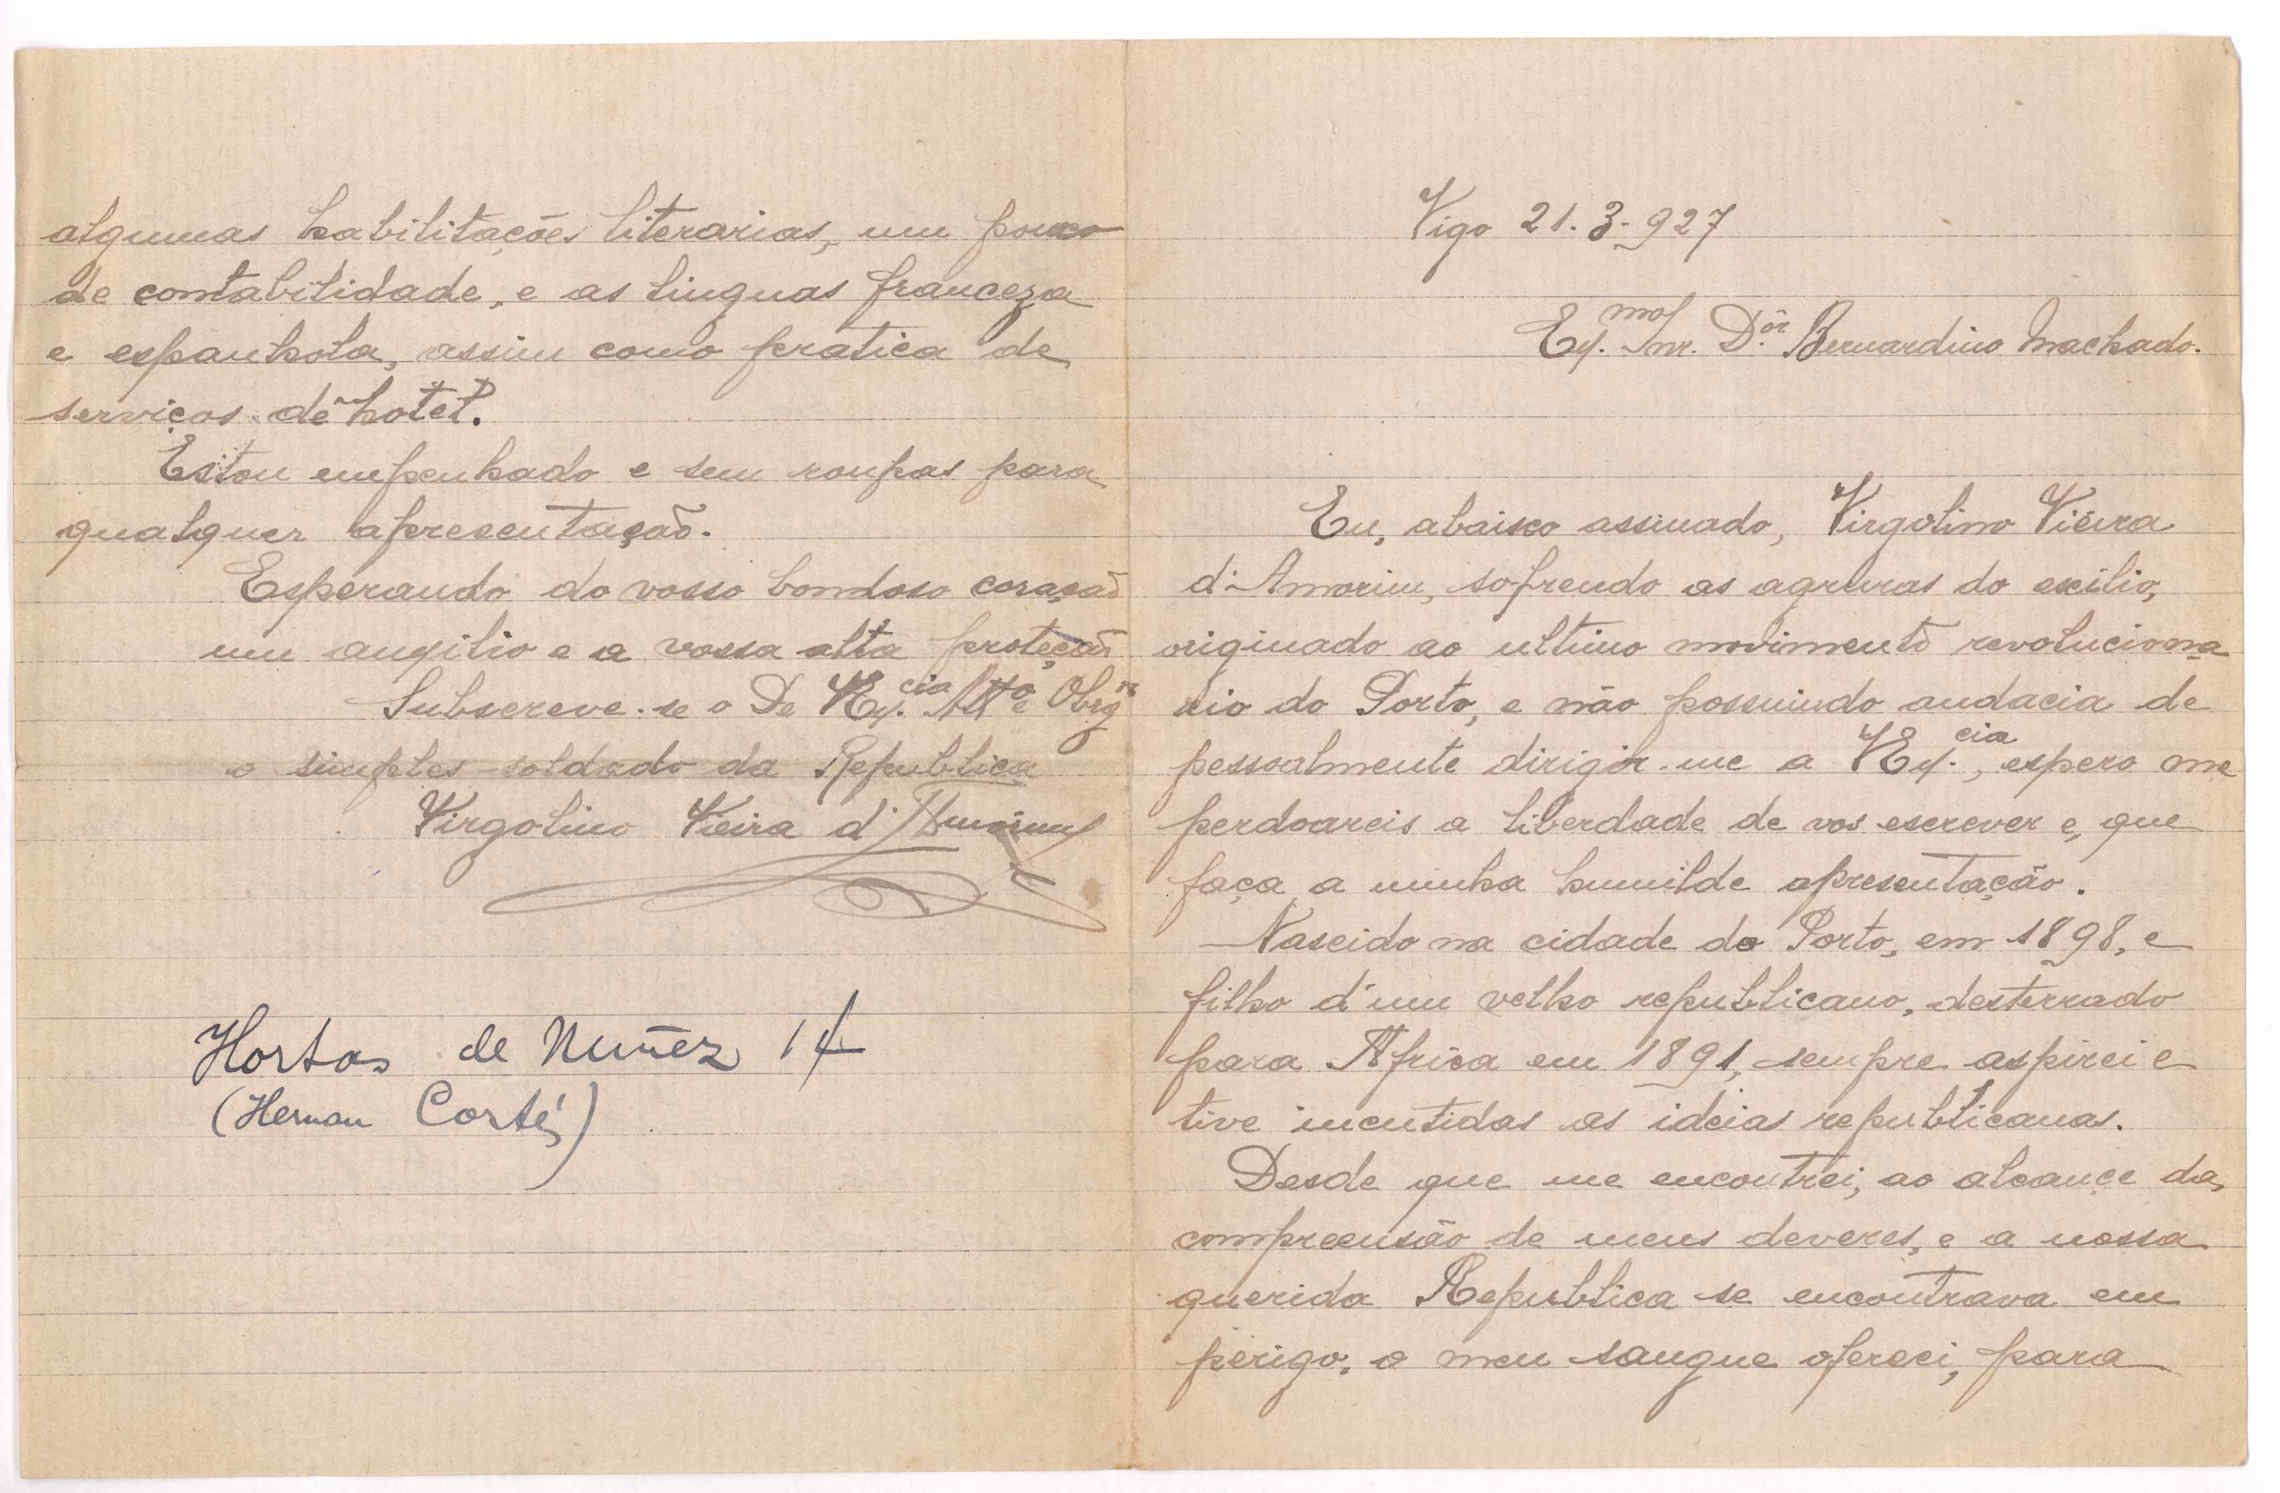 Vigo 21.3.927
Ex.mo Snr. D.or Bernardino Machado.
Eu, abaixo assinado, Virgolino Vieira
d'Amorim, sofrendo as agruras do exilio,
originado ao ultimo movimento revoluciona
rio do Porto, e não possuindo audacia de
pessoalmente dirigir-me a V Ex.cia, espero me
perdoareis a liberdade de vos escrever e, que
faça a minha humilde apresentação.
Nascido na cidade do Porto, em 1898, e
filho d'um velho republicano, desterrado
para Africa em 1891, sempre aspirei e
tive incutidas as ideias republicanas.
Desde que me encontrei, ao alcance da
compreensão de meus deveres, e a nossa
querida Republica se encontrava em
perigo, o meu sangue ofereci, para
algumas habilitações literarias, um pouco
de contabilidade, e as linguas franceza
e espanhola, assim como pratica de
serviços de hotel.
Estou empenhado e sem roupas para
qualquer apresentação.
Esperando do vosso bondoso coração
um auxilio e a vossa alta proteção
Subscreve-se o De V Ex.cia Att.o e Obrg
o simples soldado da Republica
Virgolino Vieira d'Amorim
Hortas de Nuñez 14
(Hernan Cortés)